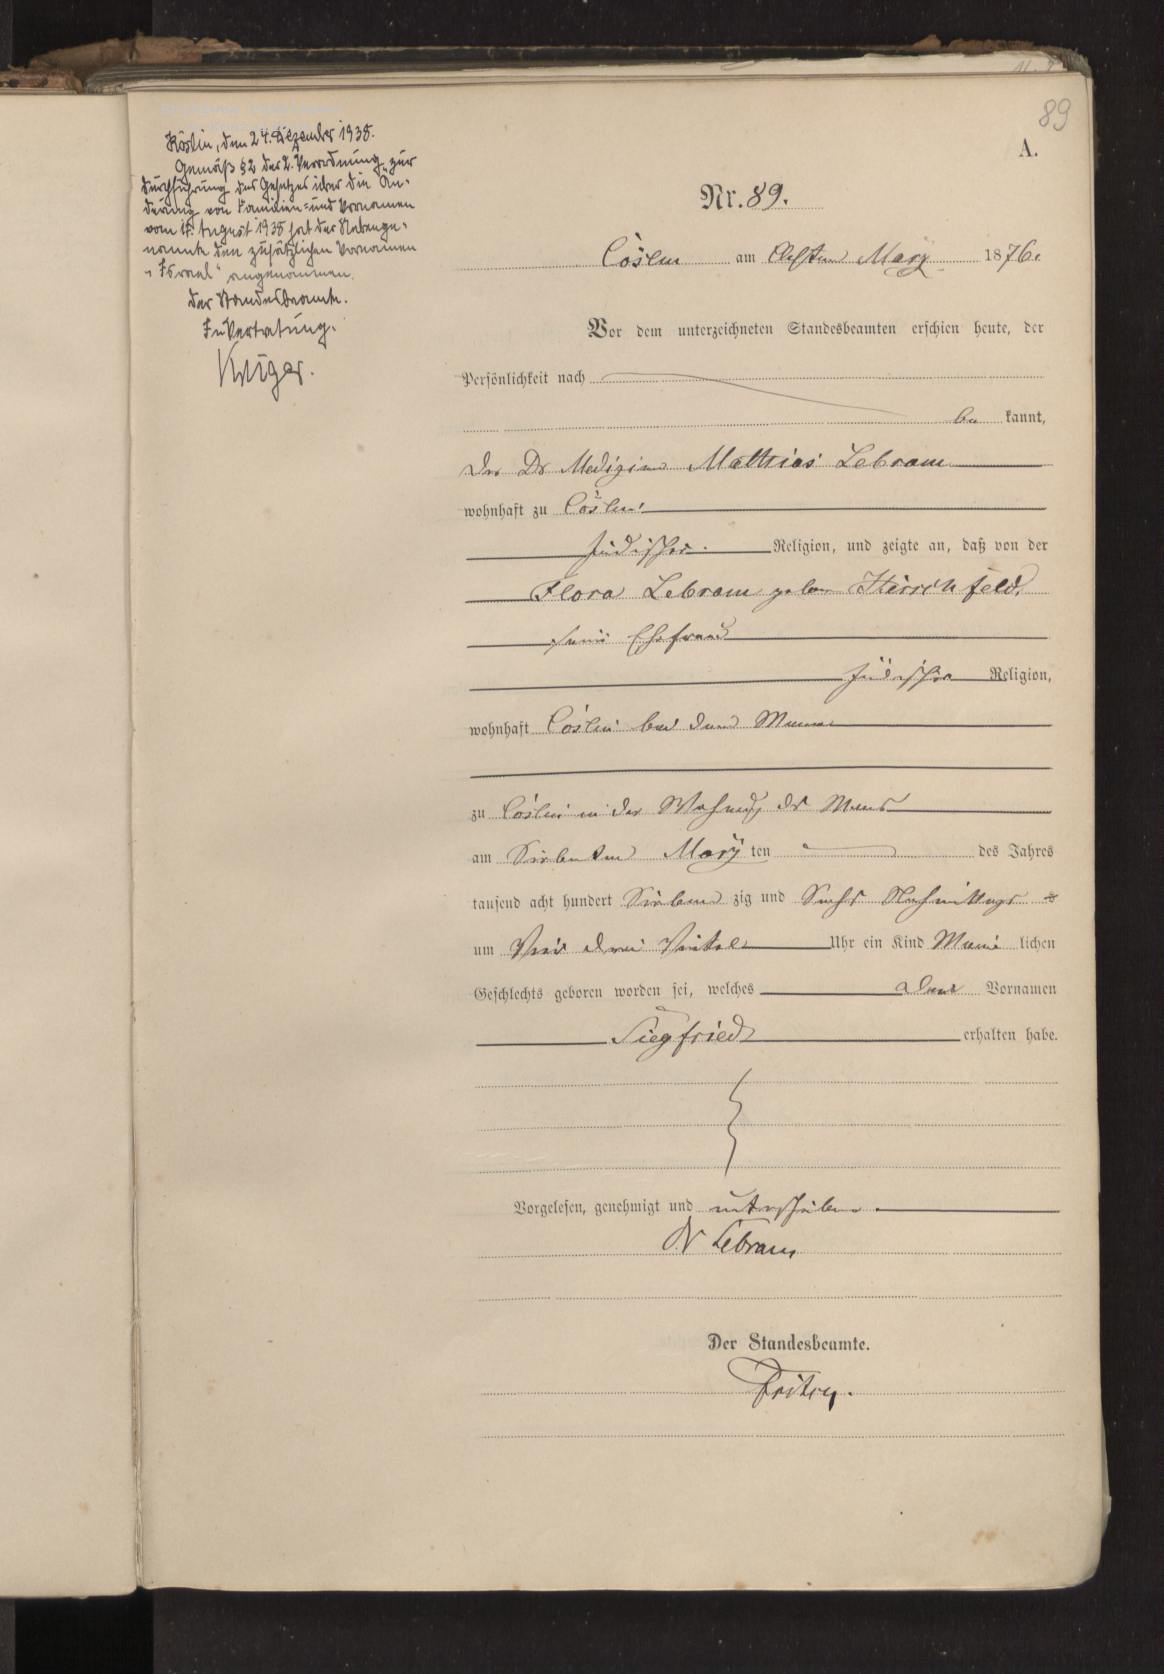 89
A.
Nr. 89.
Cöslin am Elften März 1876.
Vor dem unterzeichneten Standesbeamten erschien heute, der
Persönlichkeit nach
be kannt,
der Dr Medizin Mathias Lebram
wohnhaft zu Cöslin
jüdischer Religion, und zeigte an, daß von der
Flora Lebram geborn Hirschfeld,
seine Ehefrau
jüdischer Religion,
wohnhaft Cöslin bei dem Manne
zu Cöslin in der Wohnung des Manns
am Siebenten März ten des Jahres
tausend acht hundert Sieben zig und Sechs Nachmittags
um Vier drei Viertel Uhr ein Kind Männ lichen
Geschlechts geboren worden sei, welches den Vornamen
Siegfried erhalten habe.
Vorgelesen, genehmigt und unterschrieben
Dr Lebram
Der Standesbeamte.
Köslin, den 24. Dezember 1938.
Gemäß § 2 der 2. Verordnung zur
Durchführung des Gesetzes über die Än-
derung von Familien- und Vornamen
vom 17. August 1938 hat der Nebenge-
nannte den zusätzlichen Vornamen
"Israel" angenommen.
Der Standesbeamte.
In Vertretung.
Krüger.